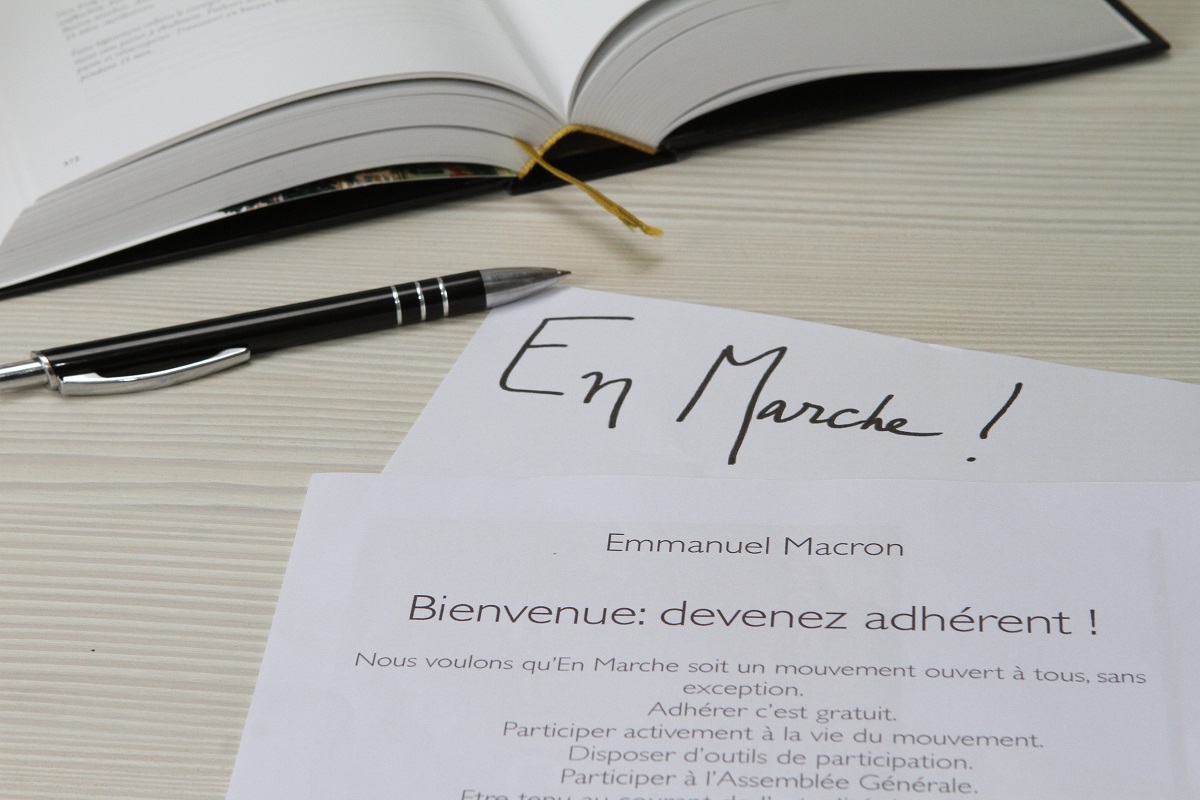 373
En Marche !
Emmanuel Macron
Bienvenue: devenez adhérent !
Nous voulons qu'En Marche soit un mouvement ouvert à tous, sans
exception.
Adhérer c'est gratuit.
Participer activement à la vie du mouvement.
Disposer d'outils de participation.
Participer à l'Assemblée Générale.